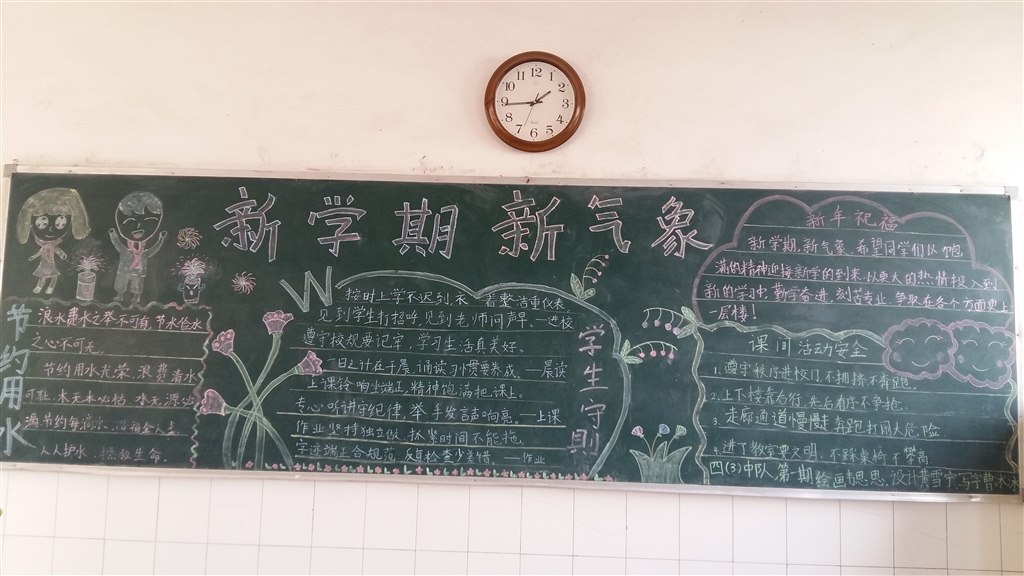 12
1
2
3
4
5
6
7
8
9
10
11
新学期 新气象
节约用水
浪水费水之举不可有,节水俭水
之心不可无。
节约用水光荣,浪费着水
可耻,木无本必枯,水无源必
滴节约每滴水,造福全人类
人人护水,拯救生命。
按时上学不迟到,衣着整洁重仪表
见到学生打招呼,见到老师问声早,一进校
遵守校规要记牢,学习生活真美好。
一日之计在于晨,诵读习惯要养成。—晨读
上课铃响坐端正,精神饱满把课上。
专心听讲守纪律,举手发言声响亮。—上课
作业坚持独立做,抓紧时间不能拖。
字迹端正合规范,反复检查少差错。—作业
学生守则
新年祝福
新学期,新气象,希望同学们以饱
满的精神迎接新学的到来,以更大的热情投入到
新的学习中,勤学奋进,刻苦专业,争取在各个方面更上
一层楼!
课间活动安全
1、遵守秩序进校门不拥挤不奔跑。
2、上下楼靠右行,先后有序不争抢。
3、走廊通道慢慢走,奔跑打闹太危险
4、进了教室要文明,不踩桌椅不攀高
四(3)中队,第一期,绘画:思思,设计:黄雪宁,写字:曹